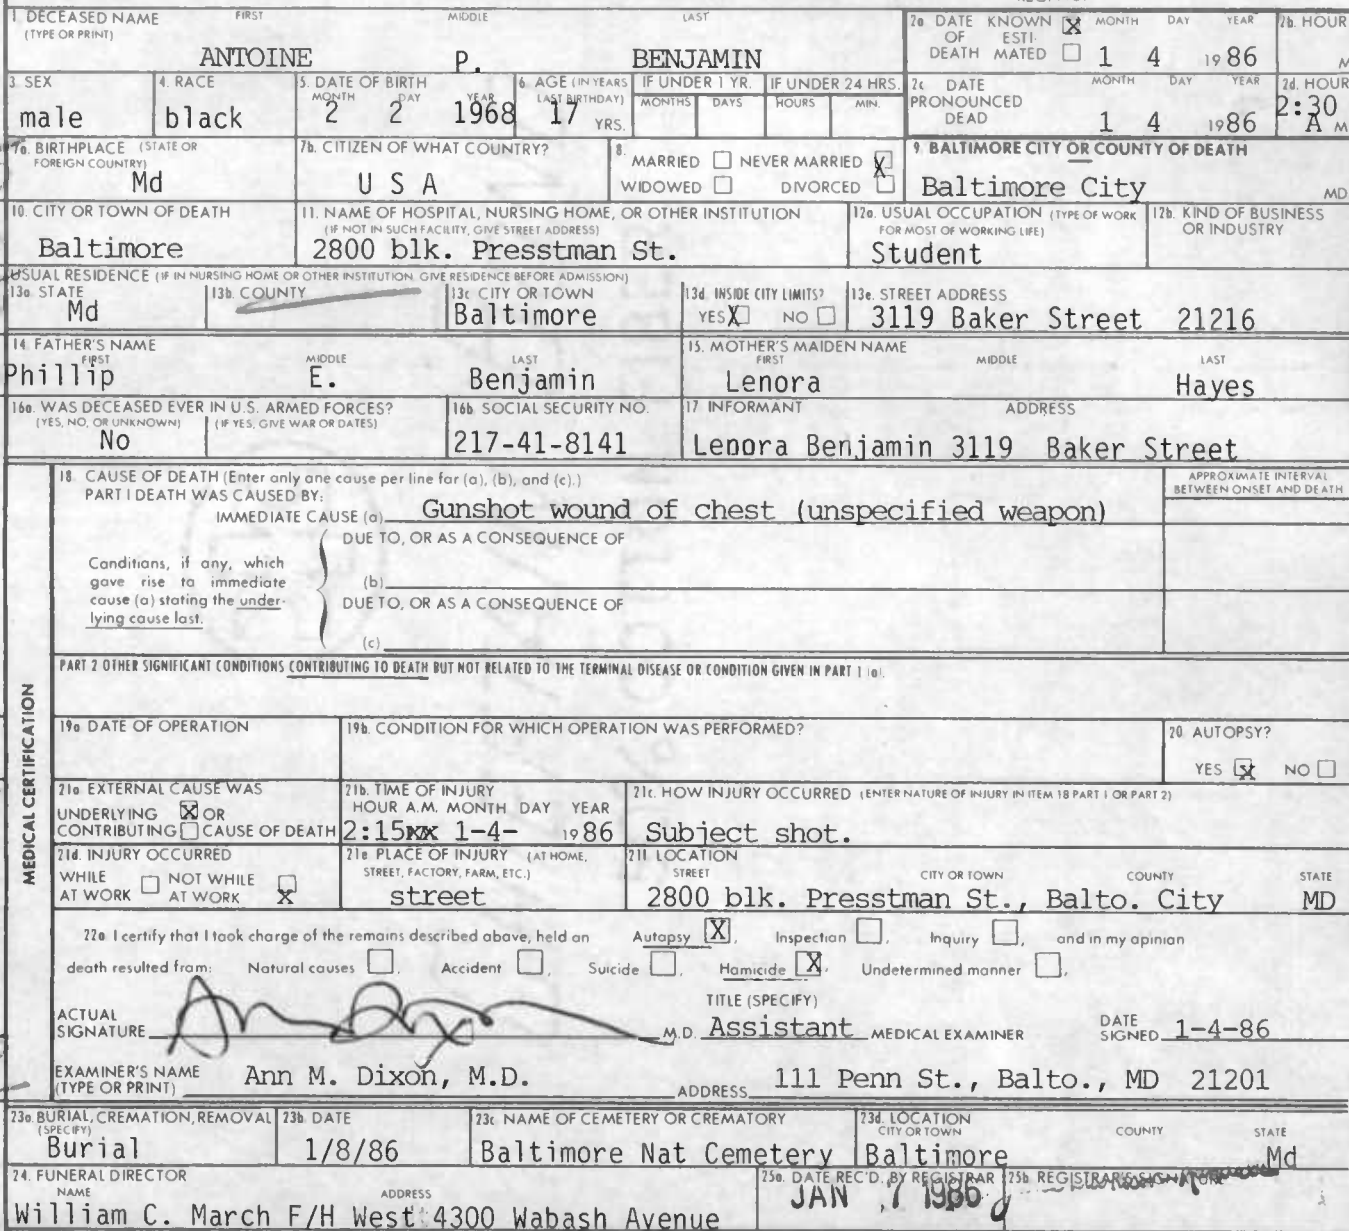 1 DECEASED NAME FIRST MIDDLE LAST
(TYPE OR PRINT)
ANTOINE P. BENJAMIN
2a DATE OF DEATH KNOWN X ESTIMATED MONTH DAY YEAR
1 4 1986
2b. HOUR
M
3 SEX
male
4. RACE
black
5. DATE OF BIRTH
MONTH DAY YEAR
2 2 1968
6 AGE (IN YEARS LAST BIRTHDAY)
17 YRS.
IF UNDER 1 YR.
MONTHS DAYS
IF UNDER 24 HRS.
HOURS MIN.
2c DATE PRONOUNCED DEAD MONTH DAY YEAR
1 4 1986
2d. HOUR
2:30 A M
7a. BIRTHPLACE (STATE OR FOREIGN COUNTRY)
Md
7b. CITIZEN OF WHAT COUNTRY?
U S A
8. MARRIED NEVER MARRIED X
WIDOWED DIVORCED
9. BALTIMORE CITY OR COUNTY OF DEATH
Baltimore City MD
10. CITY OR TOWN OF DEATH
Baltimore
11. NAME OF HOSPITAL, NURSING HOME, OR OTHER INSTITUTION
(IF NOT IN SUCH FACILITY, GIVE STREET ADDRESS)
2800 blk. Presstman St.
12a. USUAL OCCUPATION (TYPE OF WORK FOR MOST OF WORKING LIFE)
Student
12b. KIND OF BUSINESS OR INDUSTRY
USUAL RESIDENCE (IF IN NURSING HOME OR OTHER INSTITUTION GIVE RESIDENCE BEFORE ADMISSION)
13a. STATE
Md
13b. COUNTY
13c CITY OR TOWN
Baltimore
13d. INSIDE CITY LIMITS?
YES X NO
13e. STREET ADDRESS
3119 Baker Street 21216
14. FATHER'S NAME
FIRST MIDDLE LAST
Phillip E. Benjamin
15. MOTHER'S MAIDEN NAME
FIRST MIDDLE LAST
Lenora Hayes
16a. WAS DECEASED EVER IN U.S. ARMED FORCES?
(YES, NO, OR UNKNOWN) (IF YES, GIVE WAR OR DATES)
No
16b. SOCIAL SECURITY NO.
217-41-8141
17 INFORMANT ADDRESS
Lenora Benjamin 3119 Baker Street
MEDICAL CERTIFICATION
18. CAUSE OF DEATH (Enter only one cause per line for (a), (b), and (c).)
PART I DEATH WAS CAUSED BY:
IMMEDIATE CAUSE (a) Gunshot wound of chest (unspecified weapon)
APPROXIMATE INTERVAL BETWEEN ONSET AND DEATH
DUE TO, OR AS A CONSEQUENCE OF
Conditions, if any, which gave rise to immediate cause (a) stating the underlying cause last.
(b)
DUE TO, OR AS A CONSEQUENCE OF
(c)
PART 2 OTHER SIGNIFICANT CONDITIONS CONTRIBUTING TO DEATH BUT NOT RELATED TO THE TERMINAL DISEASE OR CONDITION GIVEN IN PART 1 (a).
19a DATE OF OPERATION
19b. CONDITION FOR WHICH OPERATION WAS PERFORMED?
20. AUTOPSY?
YES X NO
21a. EXTERNAL CAUSE WAS
UNDERLYING X OR
CONTRIBUTING CAUSE OF DEATH
21b. TIME OF INJURY
HOUR A.M. MONTH DAY YEAR
2:15 XX 1-4- 1986
21c. HOW INJURY OCCURRED (ENTER NATURE OF INJURY IN ITEM 18 PART 1 OR PART 2)
Subject shot.
21d. INJURY OCCURRED
WHILE AT WORK NOT WHILE AT WORK X
21e PLACE OF INJURY (AT HOME, STREET, FACTORY, FARM, ETC.)
street
21f. LOCATION
STREET CITY OR TOWN COUNTY STATE
2800 blk. Presstman St., Balto. City MD
22a I certify that I took charge of the remains described above, held an Autopsy X, Inspection, Inquiry, and in my opinion
death resulted from: Natural causes, Accident, Suicide, Homicide X, Undetermined manner,
ACTUAL SIGNATURE M.D.
TITLE (SPECIFY)
Assistant MEDICAL EXAMINER
DATE SIGNED 1-4-86
EXAMINER'S NAME (TYPE OR PRINT) Ann M. Dixon, M.D.
ADDRESS 111 Penn St., Balto., MD 21201
23a. BURIAL, CREMATION, REMOVAL (SPECIFY)
Burial
23b. DATE
1/8/86
23c NAME OF CEMETERY OR CREMATORY
Baltimore Nat Cemetery
23d. LOCATION
CITY OR TOWN COUNTY STATE
Baltimore Md
24. FUNERAL DIRECTOR
NAME ADDRESS
William C. March F/H West 4300 Wabash Avenue
25a. DATE REC'D. BY REGISTRAR
JAN 7 1986
25b. REGISTRAR'S SIGNATURE